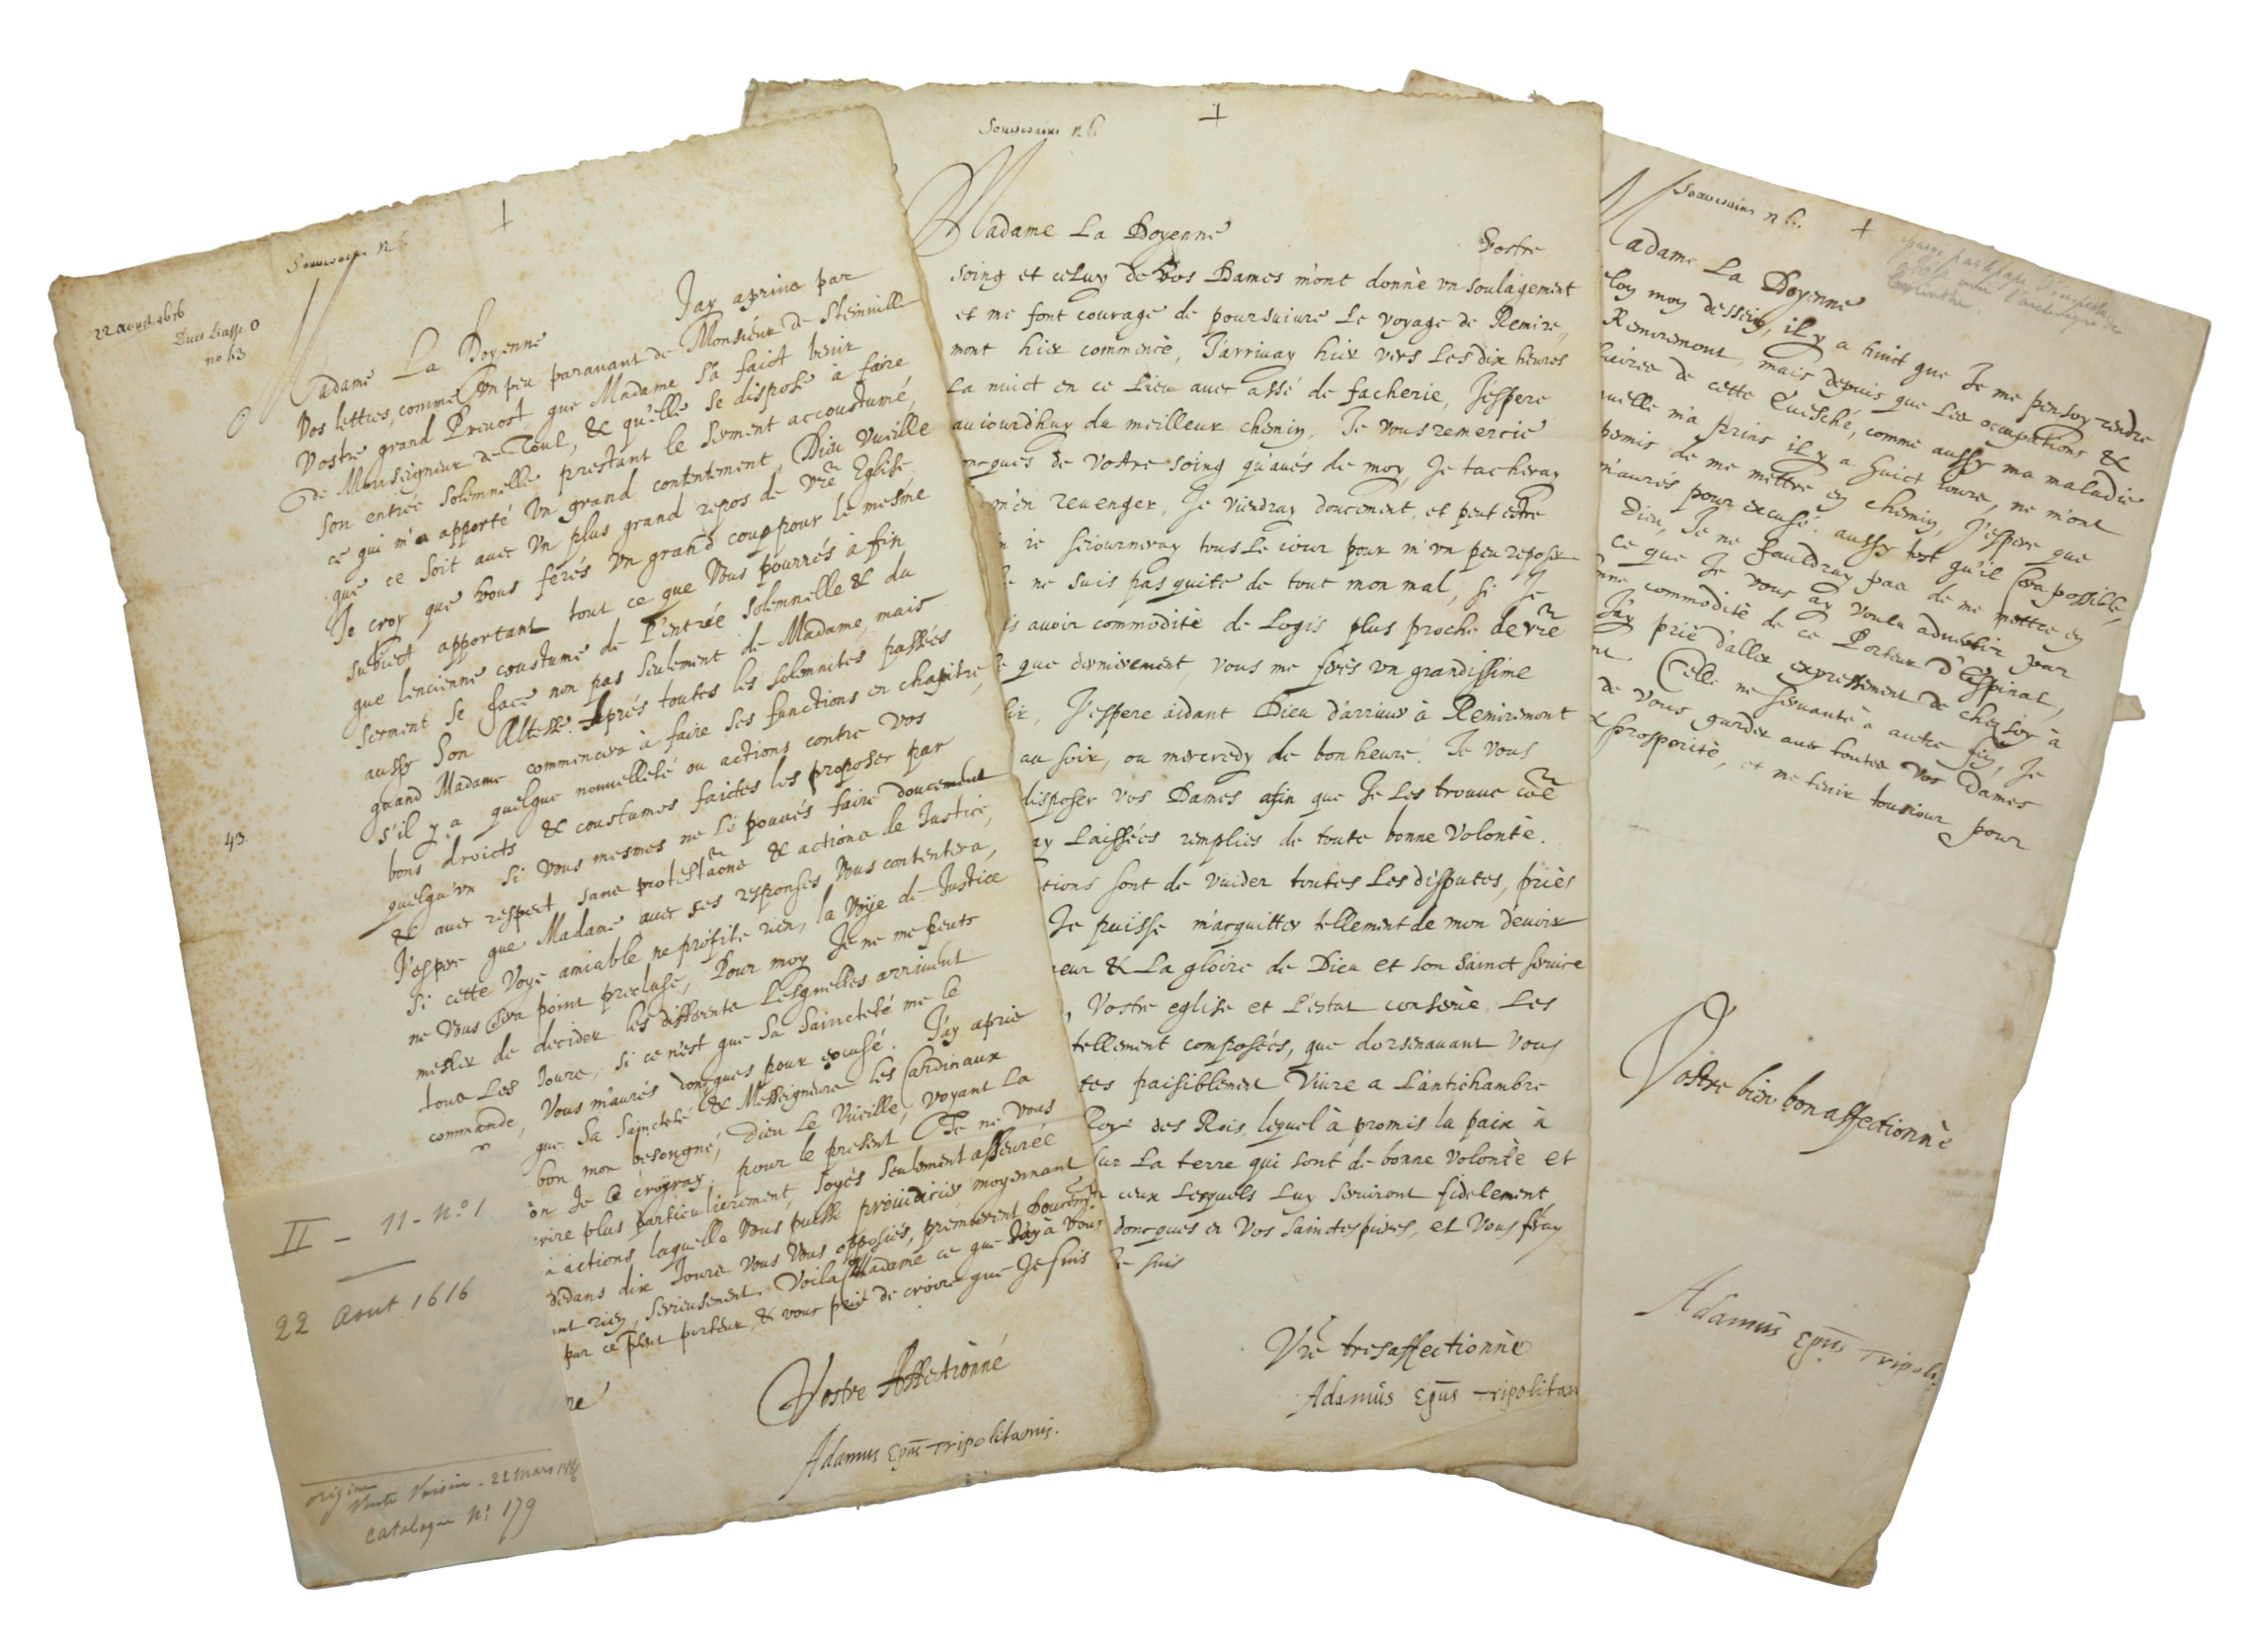 22 aoust 1616
Duce Liasse O
no 43
Madame La Doyenne
J'ay aprins par
Vos lettres, comme Un peu paravant de Monsieur de Steinville
Vostre grand Prevost que Madame s'a faict benir
de Monseigneur de Toul, & qu'elle se dispose à faire
son entrée Solemnelle prestant le serment accoustumé,
ce qui m'a apporté Un grand contentement, Dieu Vueille
que ce soit avec Vn plus grand repos de vrē Eglise.
Je croy que Vous ferés Vn grand coup pour le mesme
subiect apportant tout ce que Vous pourrés à fin
que lencienne coustume de l'entrée solemnelle & du
serment se face non pas seulement de Madame, mais
aussy Son Altesse. Aprés toutes les solemnites passées
quand Madame commencera à faire ses functions en chapitre,
s'il y a quelque nouvelleté ou actions contre vos
bons droicts & coustumes faictes les proposer par
quelqu'vn si vous mesmes ne le pouvés faire doucement
& avec respect sans protestaōns & actions de Justice,
J'espere que Madame avec ses responses Vous contentera,
Si cette Voye amiable ne profite rien, la Voye de Justice
ne Vous sera point precluse, Pour moy Je ne me peuts
mesler de decider les differents Lesquelles arrivent
tous Les Jours, si ce n'est que Sa Saincteté me le
commande, Vous m'aurés doncques pour excusé. J'ay apris
que Sa Saincteté & Messeigneurs les Cardinaux
bon mon besongné, Dieu Le Vueille, voyant La
ōn Je le croyray. pour le present Je ne Vous
rire plus particulierement, soyés seulement asseurée
actions laquelle Vous puisse preiudicier moyennant
dedans dix Jours Vous Vous opposiés, premierement doucemēt
nt rien, serieusement. Voila Madame ce que J'ay à Vous
par ce pbent porteur, & vous prie de croire que Je suis
Vostre Affectionné
Adamus Epūs Tripolitanus.
43.
II - 11 - N.o 1
22 Aout 1616
origine
Vente Voisin - 22 Mars
Catalogue N.o 179
Souverains n 6
Madame La Doyenne
Vostre
soing et celuy de Vos Dames m'ont donnè vn soulagement
et me font courage de poursuivre Le voyage de Remire,,
mont hier commencè, J'arrivay hier vers Les dix heures
La nuict en ce Lieu avec assé de facherie, J'espere
auiourdhuy du meilleur chemin. Je Vous remercie
oncques de vostre soing qu'avés de moy, Je tacheray
m'en revenger, Je viendray doucement, et peut estre
ie seiourneray tous Le iour pour m'vn peu reposer
ne suis pas quite de tout mon mal, si Je
is avoir commoditè de Logis plus proche de vrē
que dernierement, vous me ferés vn grandissime
ir, J'espere aidant Dieu d'arriver à Remiremont
au soir, ou mercredy de bon heure. Je Vous
disposer vos Dames afin que Je Les trouve cōē
ay Laissées remplies de toute bonne Volontè.
tions sont de vuider toutes Les disputes, priés
Je puisse m'acquitter tellement de mon devoir
eur & La gloire de Dieu et son sainct service
, Vostre eglise et L'estat conservè, Les
tellement composées, que dorsenavant Vous
tes paisiblement Vivre a L'antichambre
Roys des Rois, lequel à promis la paix à
sur La terre qui sont de bonne volontè et
ceux Lesquels Luy serviront fidelement,
doncques en Vos sainctes prieres, et Vous
Je suis
Vrē tresaffectionnè
Adamūs Epūs Tripolitan
Souverains n 6.
Madame La Doyenne
moy dessein, il y a huict que Je me pensoy rendre
Remiremont, mais depuis que Les occupations &
faires de cette Evesché, comme aussy ma maladie
uelle m'a prins il y a huict iours, ne m'ont
permis de me mettre en chemin, J'espere que
m'aurés pour excusé: aussy tost qu'il sera possible,
Dieu, Je ne fauldray pas de me mettre en
ce que Je vous ay voulu advertir par
nne commoditè de ce Porteur d'Espinal,
J'ay prié d'aller expressement de chez soy à
nt. Celle ne servante à autre fin, Je
de Vous garder avec toutes Vos Dames
prosperitè, et me tenir tousiour pour
Vostre bien bon affectionnè
Adamūs Epūs Tripoli